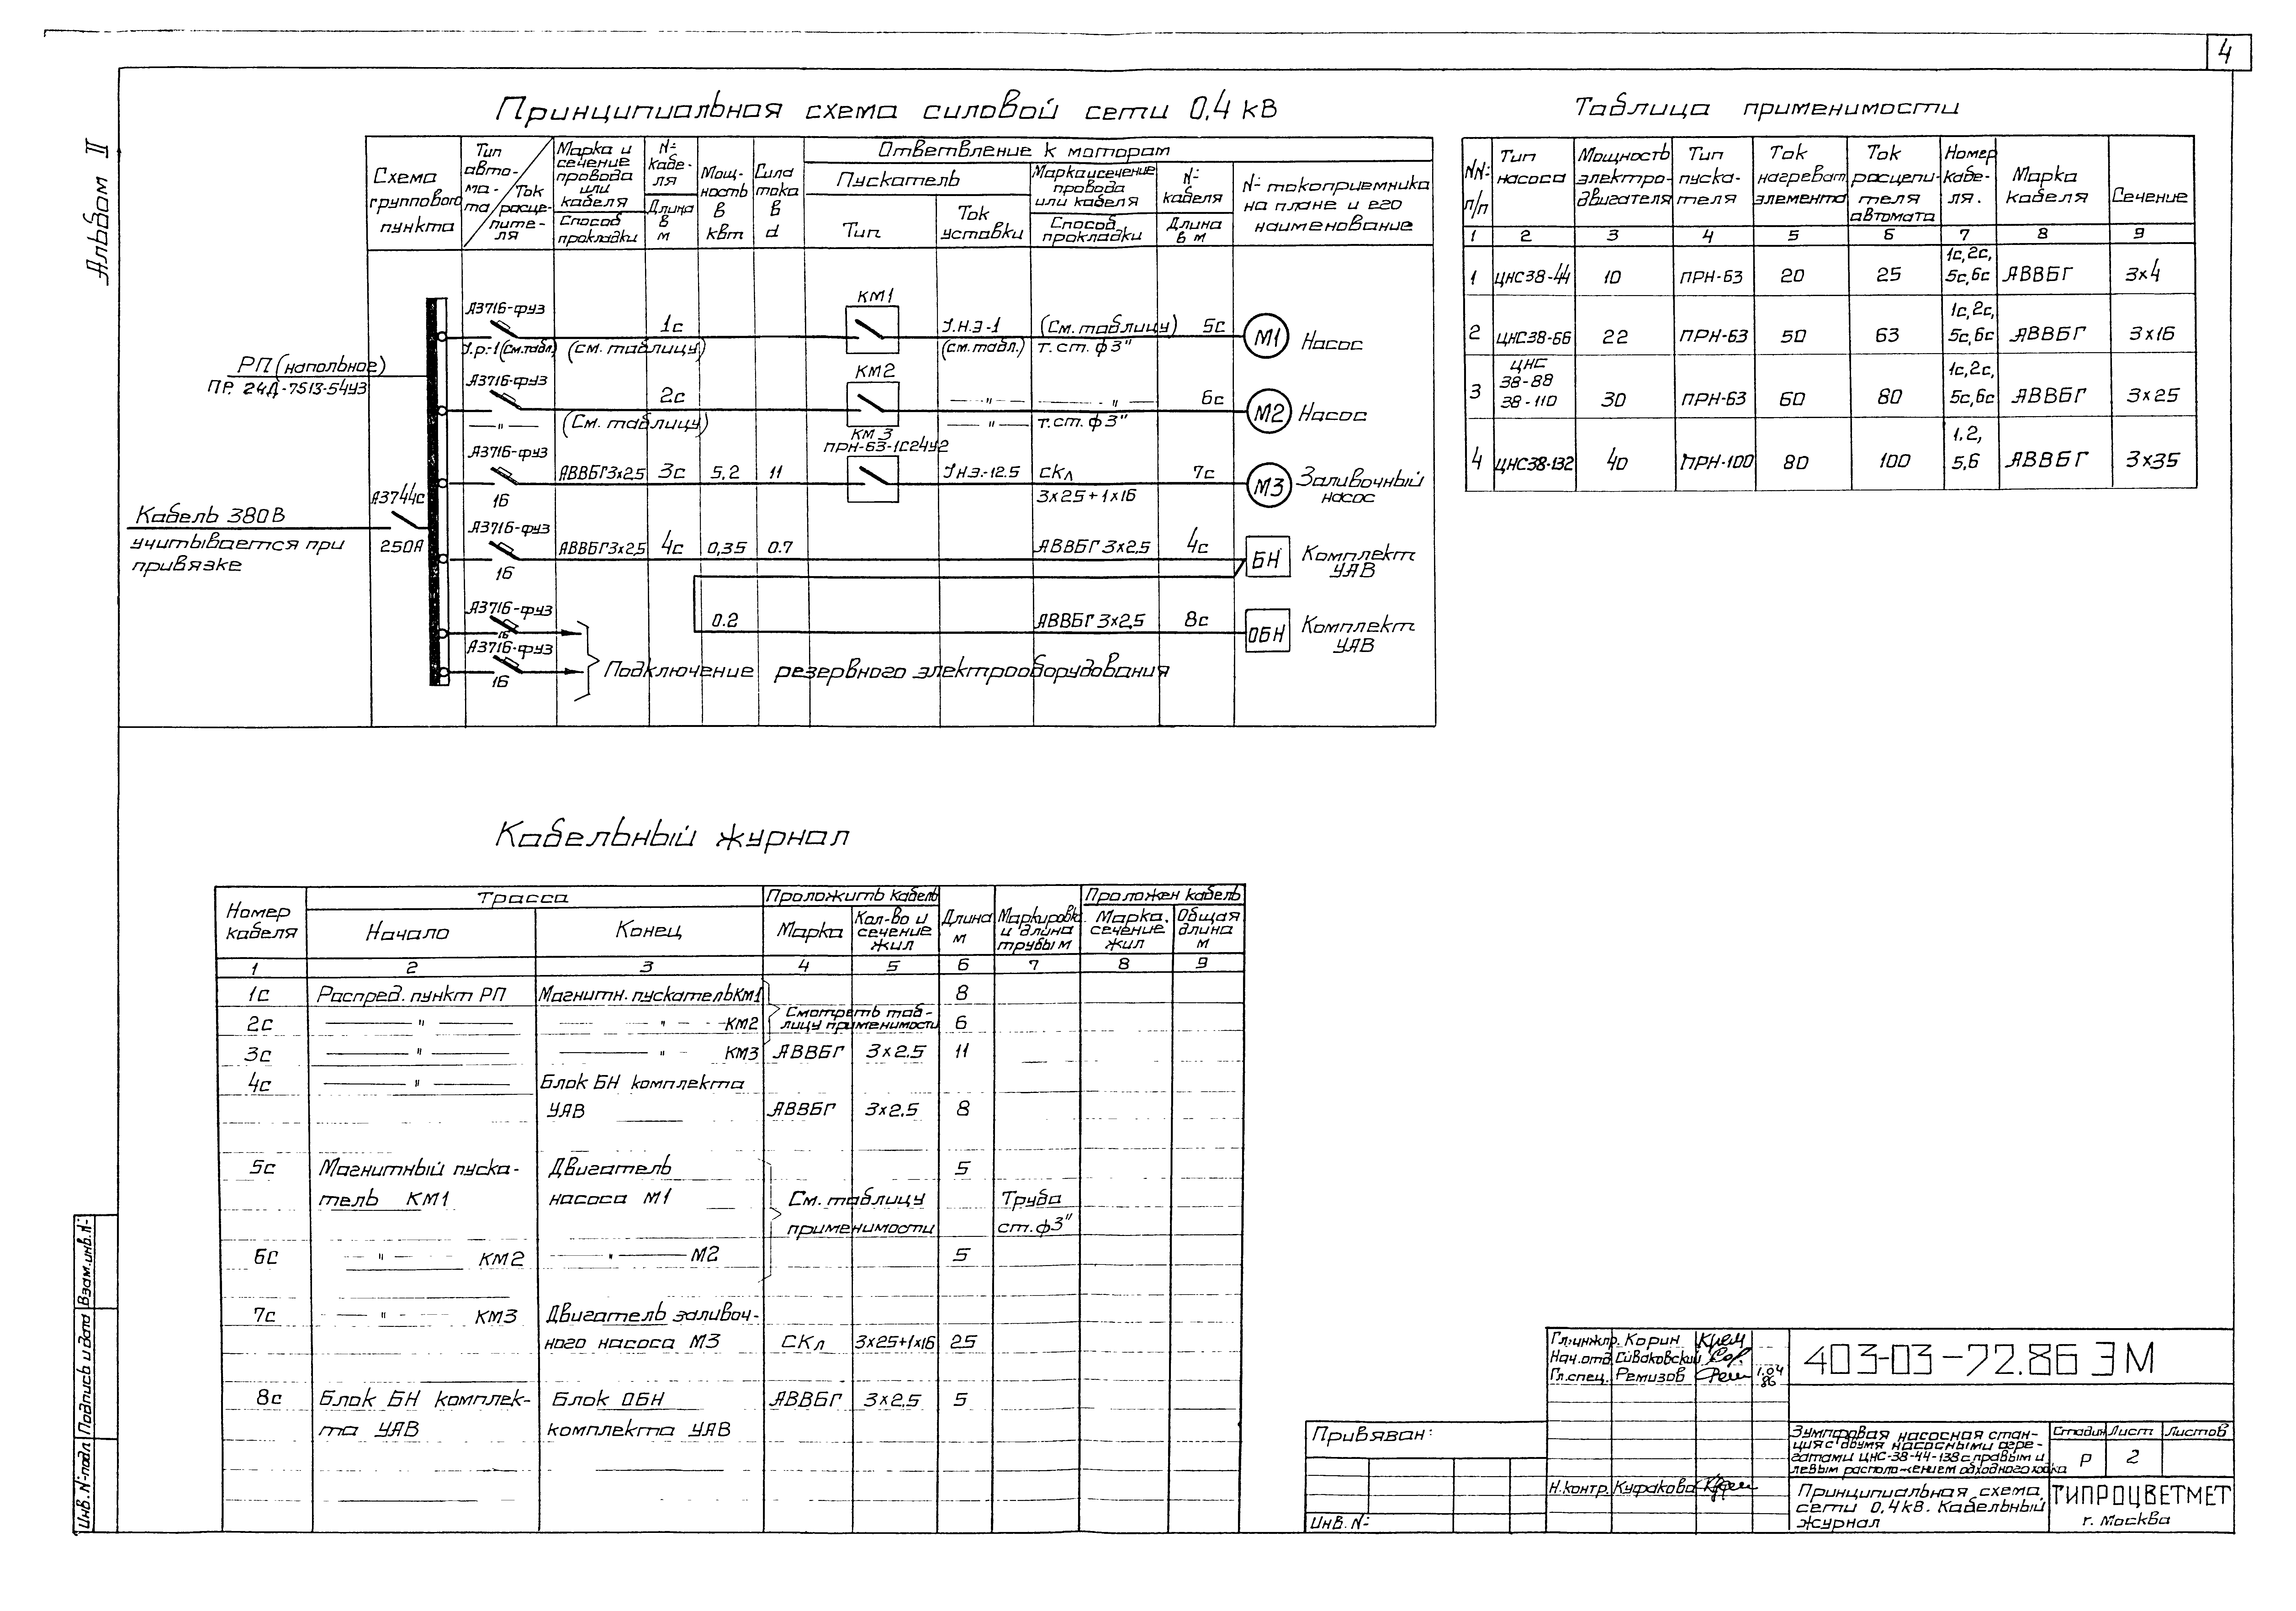 4
Альбом II
Принципиальная схема силовой сети 0,4 кВ
Схема
группового
пункта
Тип
авто-
ма-
та
Ток
расце-
пите-
ля
Марка и
сечение
провода
или
кабеля
Способ
прокладки
N:
кабе-
ля
Длина
в
м
Мощ-
ность
в
квт
Сила
тока
в
а
Ответвление к моторам
Пускатель
Тип
Ток
уставки
Марка и сечение
провода
или кабеля
Способ
прокладки
N:
кабеля
Длина
в м
N: токоприемника
на плане и его
наименование
РП (напольное)
ПР. 24Д-7513-54У3
Кабель 380В
учитывается при
привязке
А3744с
250А
А3716-фуз
Iр.-1 (см.табл.)
(см. таблицу)
1с
КМ1
Iн.э-1
(см. табл.)
(См. таблицу)
т.ст. ф3"
5с
М1
Насос
А3716-фуз
— " —
(См. таблицу)
2с
КМ2
— " —
— " —
— " —
т.ст. ф3"
6с
М2
Насос
А3716-фуз
16
АВВБГ3х2,5
3с
5,2
11
КМ3
ПРН-63-1С24У2
Iн.э.-12.5
СКл
3х25+1х16
7с
М3
Заливочный
насос
А3716-фуз
16
АВВБГ3х2,5
4с
0,35
0.7
АВВБГ 3х2,5
4с
БН
Комплект
УАВ
0.2
АВВБГ 3х2,5
8с
ОБН
Комплект
УАВ
А3716-фуз
16
А3716-фуз
16
Подключение резервного электрооборудования
Таблица применимости
NN:
п/п
Тип
насоса
Мощность
электро-
двигателя
Тип
пуска-
теля
Ток
нагреват.
элемента
Ток
расцепи-
теля
автомата
Номер
кабе-
ля.
Марка
кабеля
Сечение
1 2 3 4 5 6 7 8 9
1 ЦНС38-44 10 ПРН-63 20 25 1с,2с, 5с,6с АВВБГ 3х4
2 ЦНС38-66 22 ПРН-63 50 63 1с,2с, 5с,6с АВВБГ 3х16
3 ЦНС 38-88 38-110 30 ПРН-63 60 80 1с,2с, 5с,6с АВВБГ 3х25
4 ЦНС38-132 40 ПРН-100 80 100 1,2, 5,6 АВВБГ 3х35
Кабельный журнал
Номер
кабеля
Трасса
Начало
Конец
Проложить кабель
Марка
Кол-во и
сечение
жил
Длина
м
Маркировка
и длина
трубы м
Проложен кабель
Марка.
сечение
жил
Общая
длина
м
1 2 3 4 5 6 7 8 9
1с Распред. пункт РП Магнитн. пускатель КМ1 8
Смотреть таб-
лицу применимости
2с — " — — " — КМ2 6
3с — " — — " — КМ3 АВВБГ 3х2.5 11
4с — " — Блок БН комплекта
УАВ АВВБГ 3х2.5 8
5с Магнитный пуска- Двигатель 5
тель КМ1 насоса М1 См. таблицу Труба
применимости ст. ф3"
6с — " — КМ2 — " — М2 5
7с — " — КМ3 Двигатель заливоч-
ного насоса М3 СКл 3х25+1х16 25
8с Блок БН комплек- Блок ОБН АВВБГ 3х2.5 5
та УАВ комплекта УАВ
Инв. N: подл Подпись и дата Взам.инв.N:
Гл.инж.пр. Корин
Нач.отд. Сиваковский
Гл.спец. Ремизов
1.04
86
Н.контр. Куфакова
403-03-72.86 ЭМ
Привязан:
Инв. N:
Зумпфовая насосная стан-
ция с двумя насосными агре-
гатами ЦНС-38-44-138 с правым и
левым располо-жением обходного ходка
Стадия Лист Листов
Р 2
Принципиальная схема
сети 0,4кВ. Кабельный
журнал
ГИПРОЦВЕТМЕТ
г. Москва